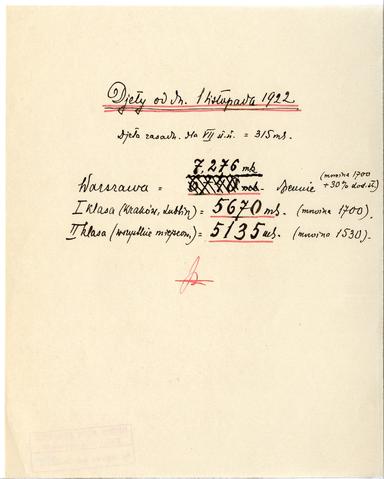 Djety od dn. 1 listopada 1922.
Djeta zasadn. dla VII st. = 315 mk.
7.276 mk
Warszawa = mk. dziennie (mnożna 1700 + 30% dod.)
I klasa (Kraków, Lublin) = 5670 mk. (mnożna 1700).
II klasa (wszystkie miejscow.) = 5135 mk. (mnożna 1530).